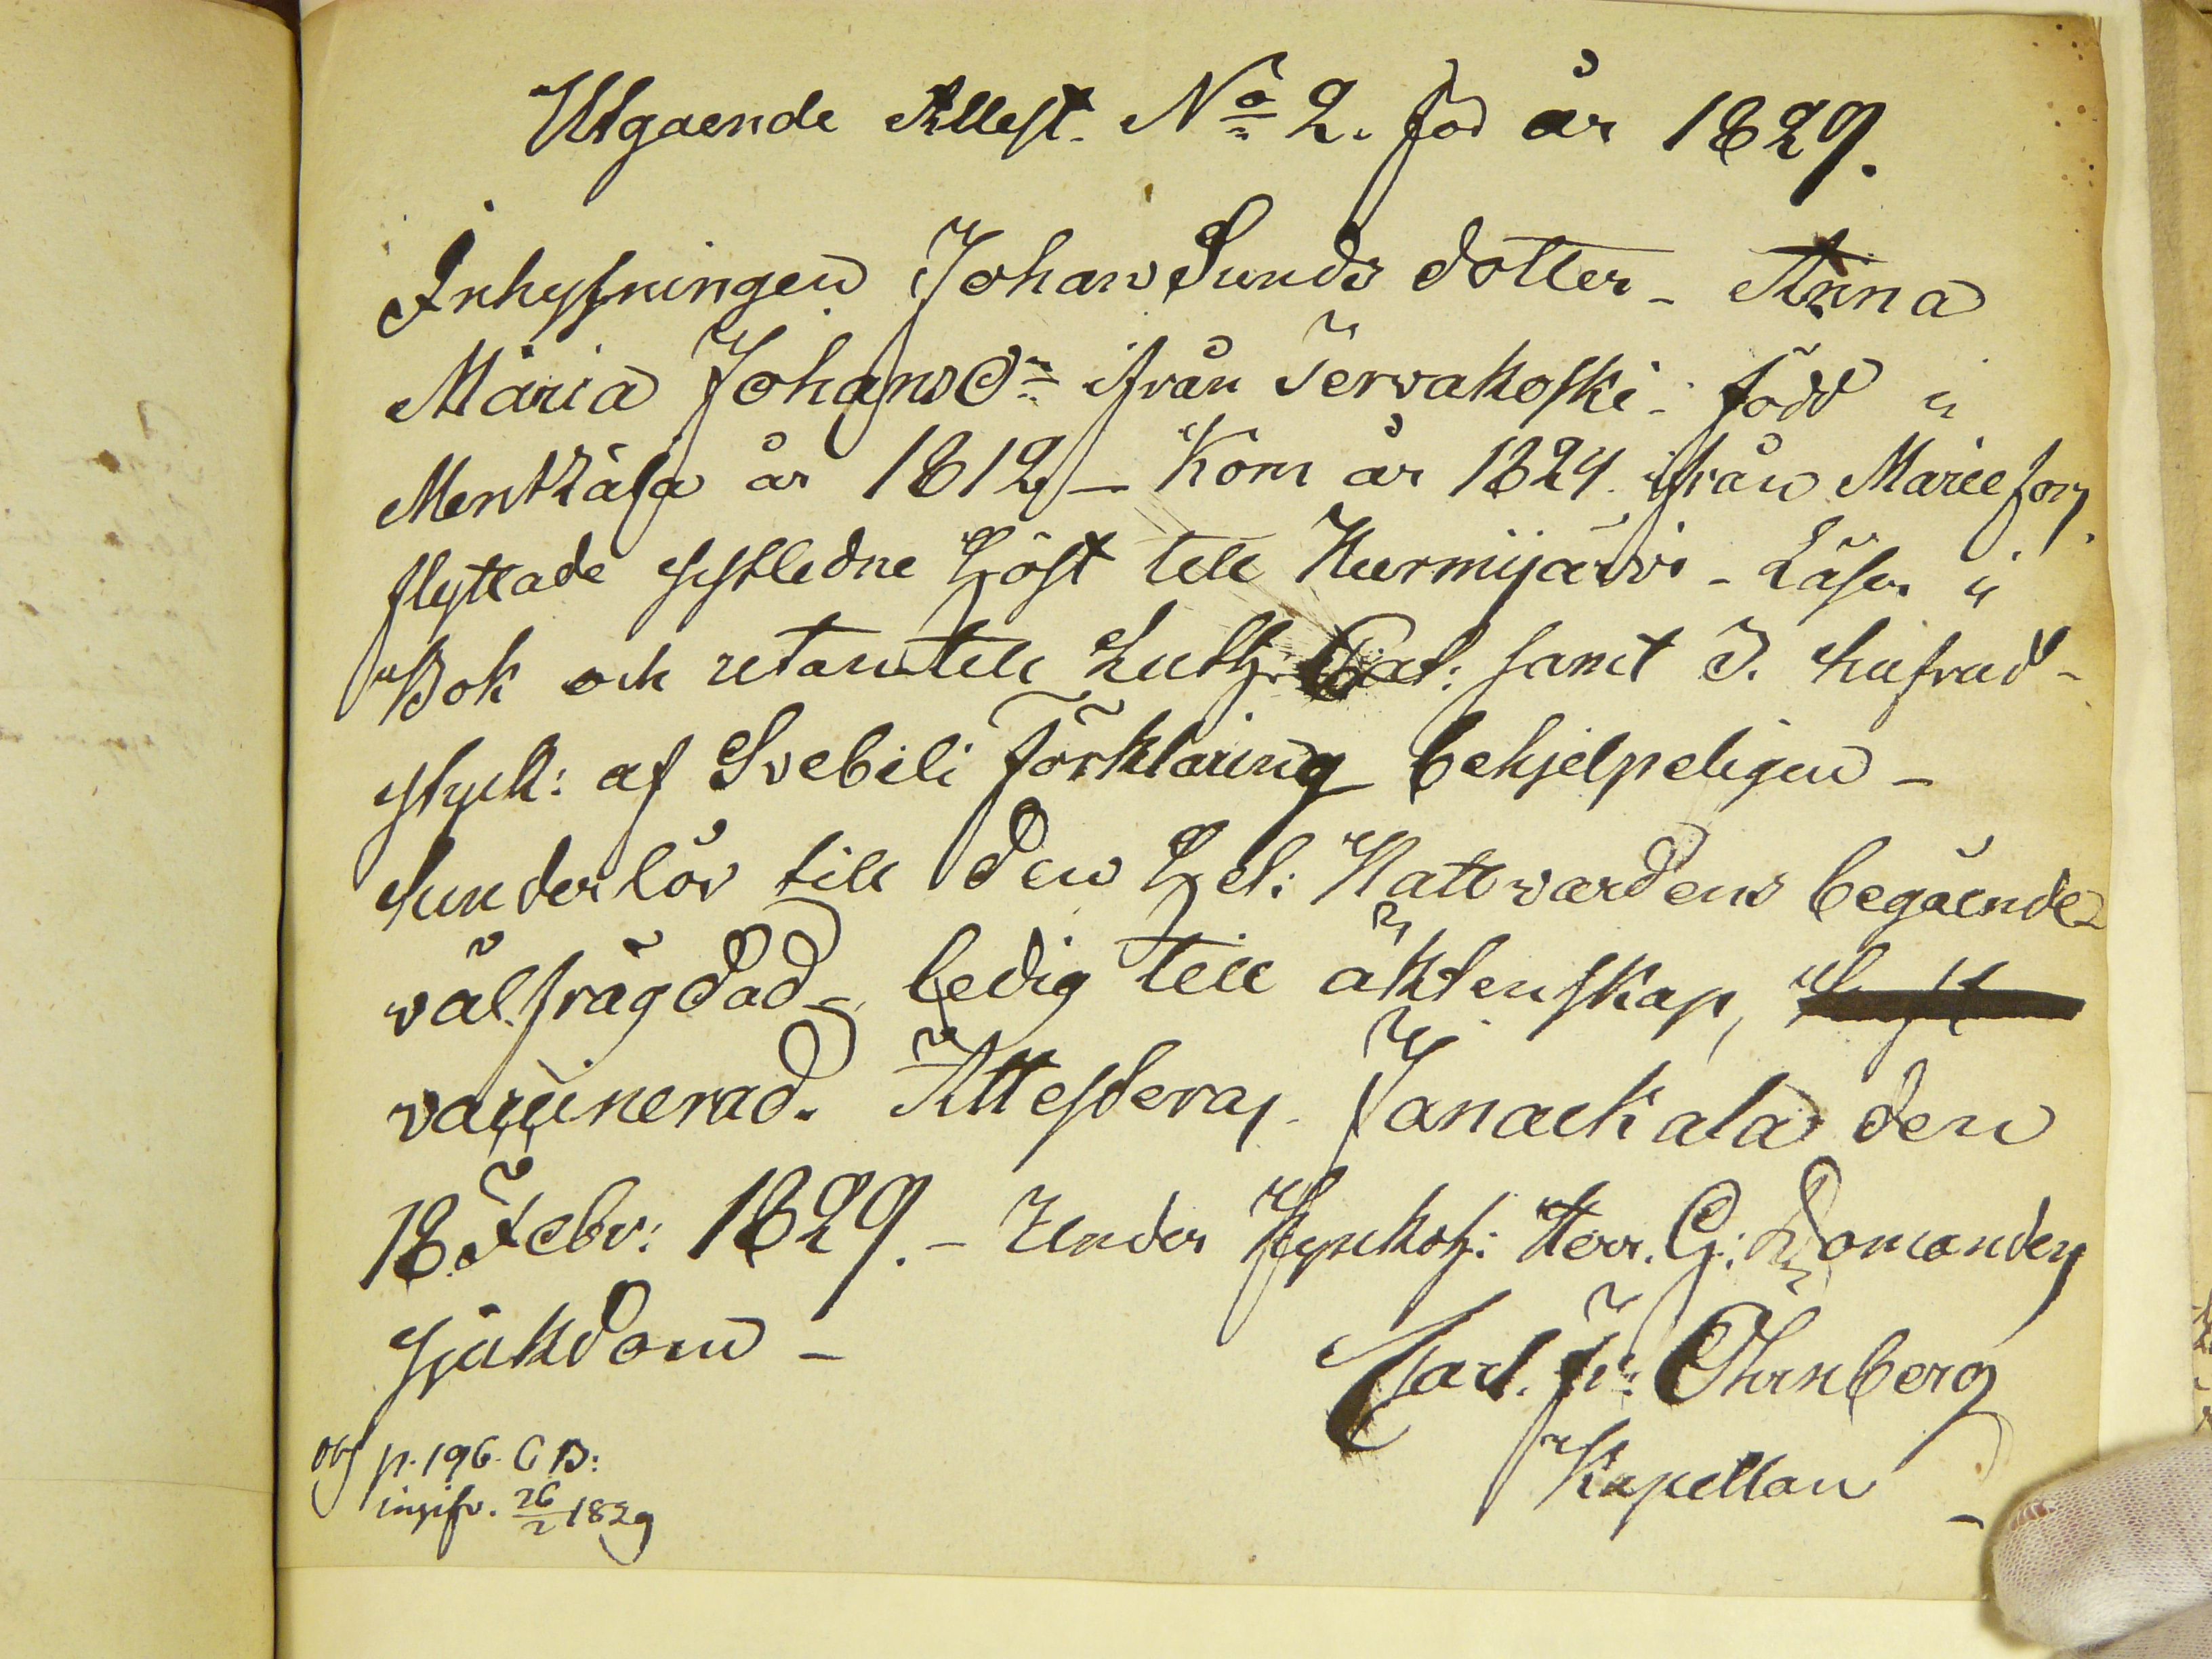 Utgaende Attest. No 2. för år 1829.
Inhysningen Johan Sunds dotter - Anna
Maria Johans Dr ifrån Terwakoski - född i
Mentzälä år 1812 - Kom år 1824 ifrån Marie förs.
flyttade sistledne höst till Nurmijärvi - Läser i
Bok och utantill Luth: Cat: samt 3. hufvud-
styck: af Svebili Förklaring behjelpeligen -
Sunderlöv till den Hel: Nattvardens begående
välfrägdad - ledig till äktenskap,
vaccinerad. Attesteras Janackala den
18 Febr: 1829. - Under Kyrkoh: Herr. G: Domanders
sjukdom -
Carl. Fr: Öhrnberg
Kapellan -
p. 196. C B:
26/2 1829